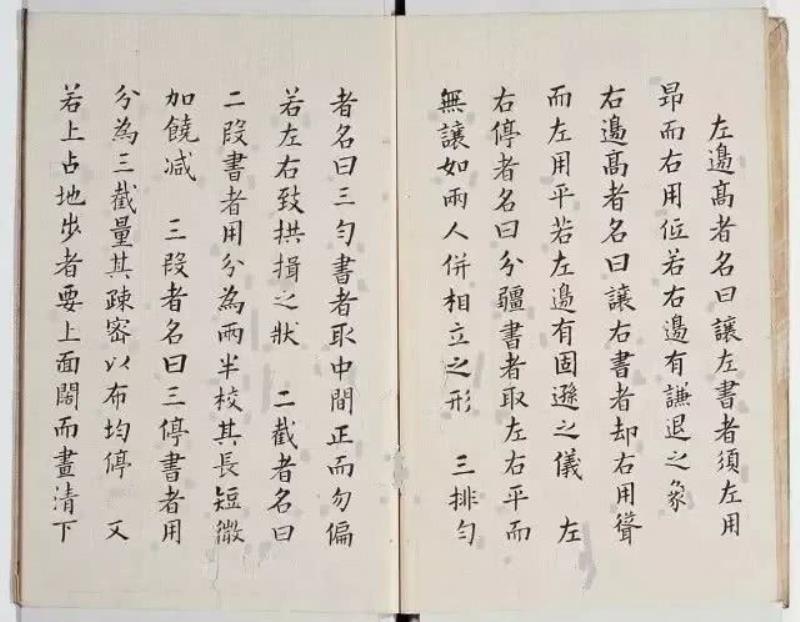 左邊髙者名曰讓左書者須左用
昂而右用低若右邊有謙退之象
右邊髙者名曰讓右書者却右用聳
而左用平若左邊有固遜之儀　左
右停者名曰分疆書者取左右平而
無讓如兩人併相立之形　三排勻
者名曰三勻書者取中間正而勿偏
若左右致拱揖之狀　二截者名曰
二段書者用分為兩半校其長短微
加饒减　三段者名曰三停書者用
分為三截量其疎密以布均停　又
若上占地步者要上面闊而畫清下